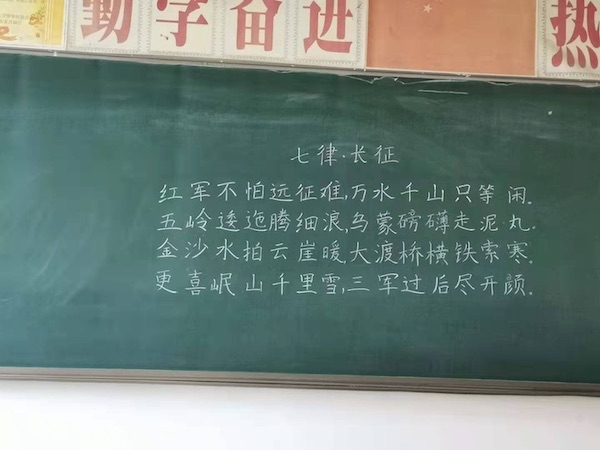 勤学奋进 热
七律·长征
红军不怕远征难,万水千山只等闲.
五岭逶迤腾细浪,乌蒙磅礴走泥丸.
金沙水拍云崖暖,大渡桥横铁索寒.
更喜岷山千里雪,三军过后尽开颜.